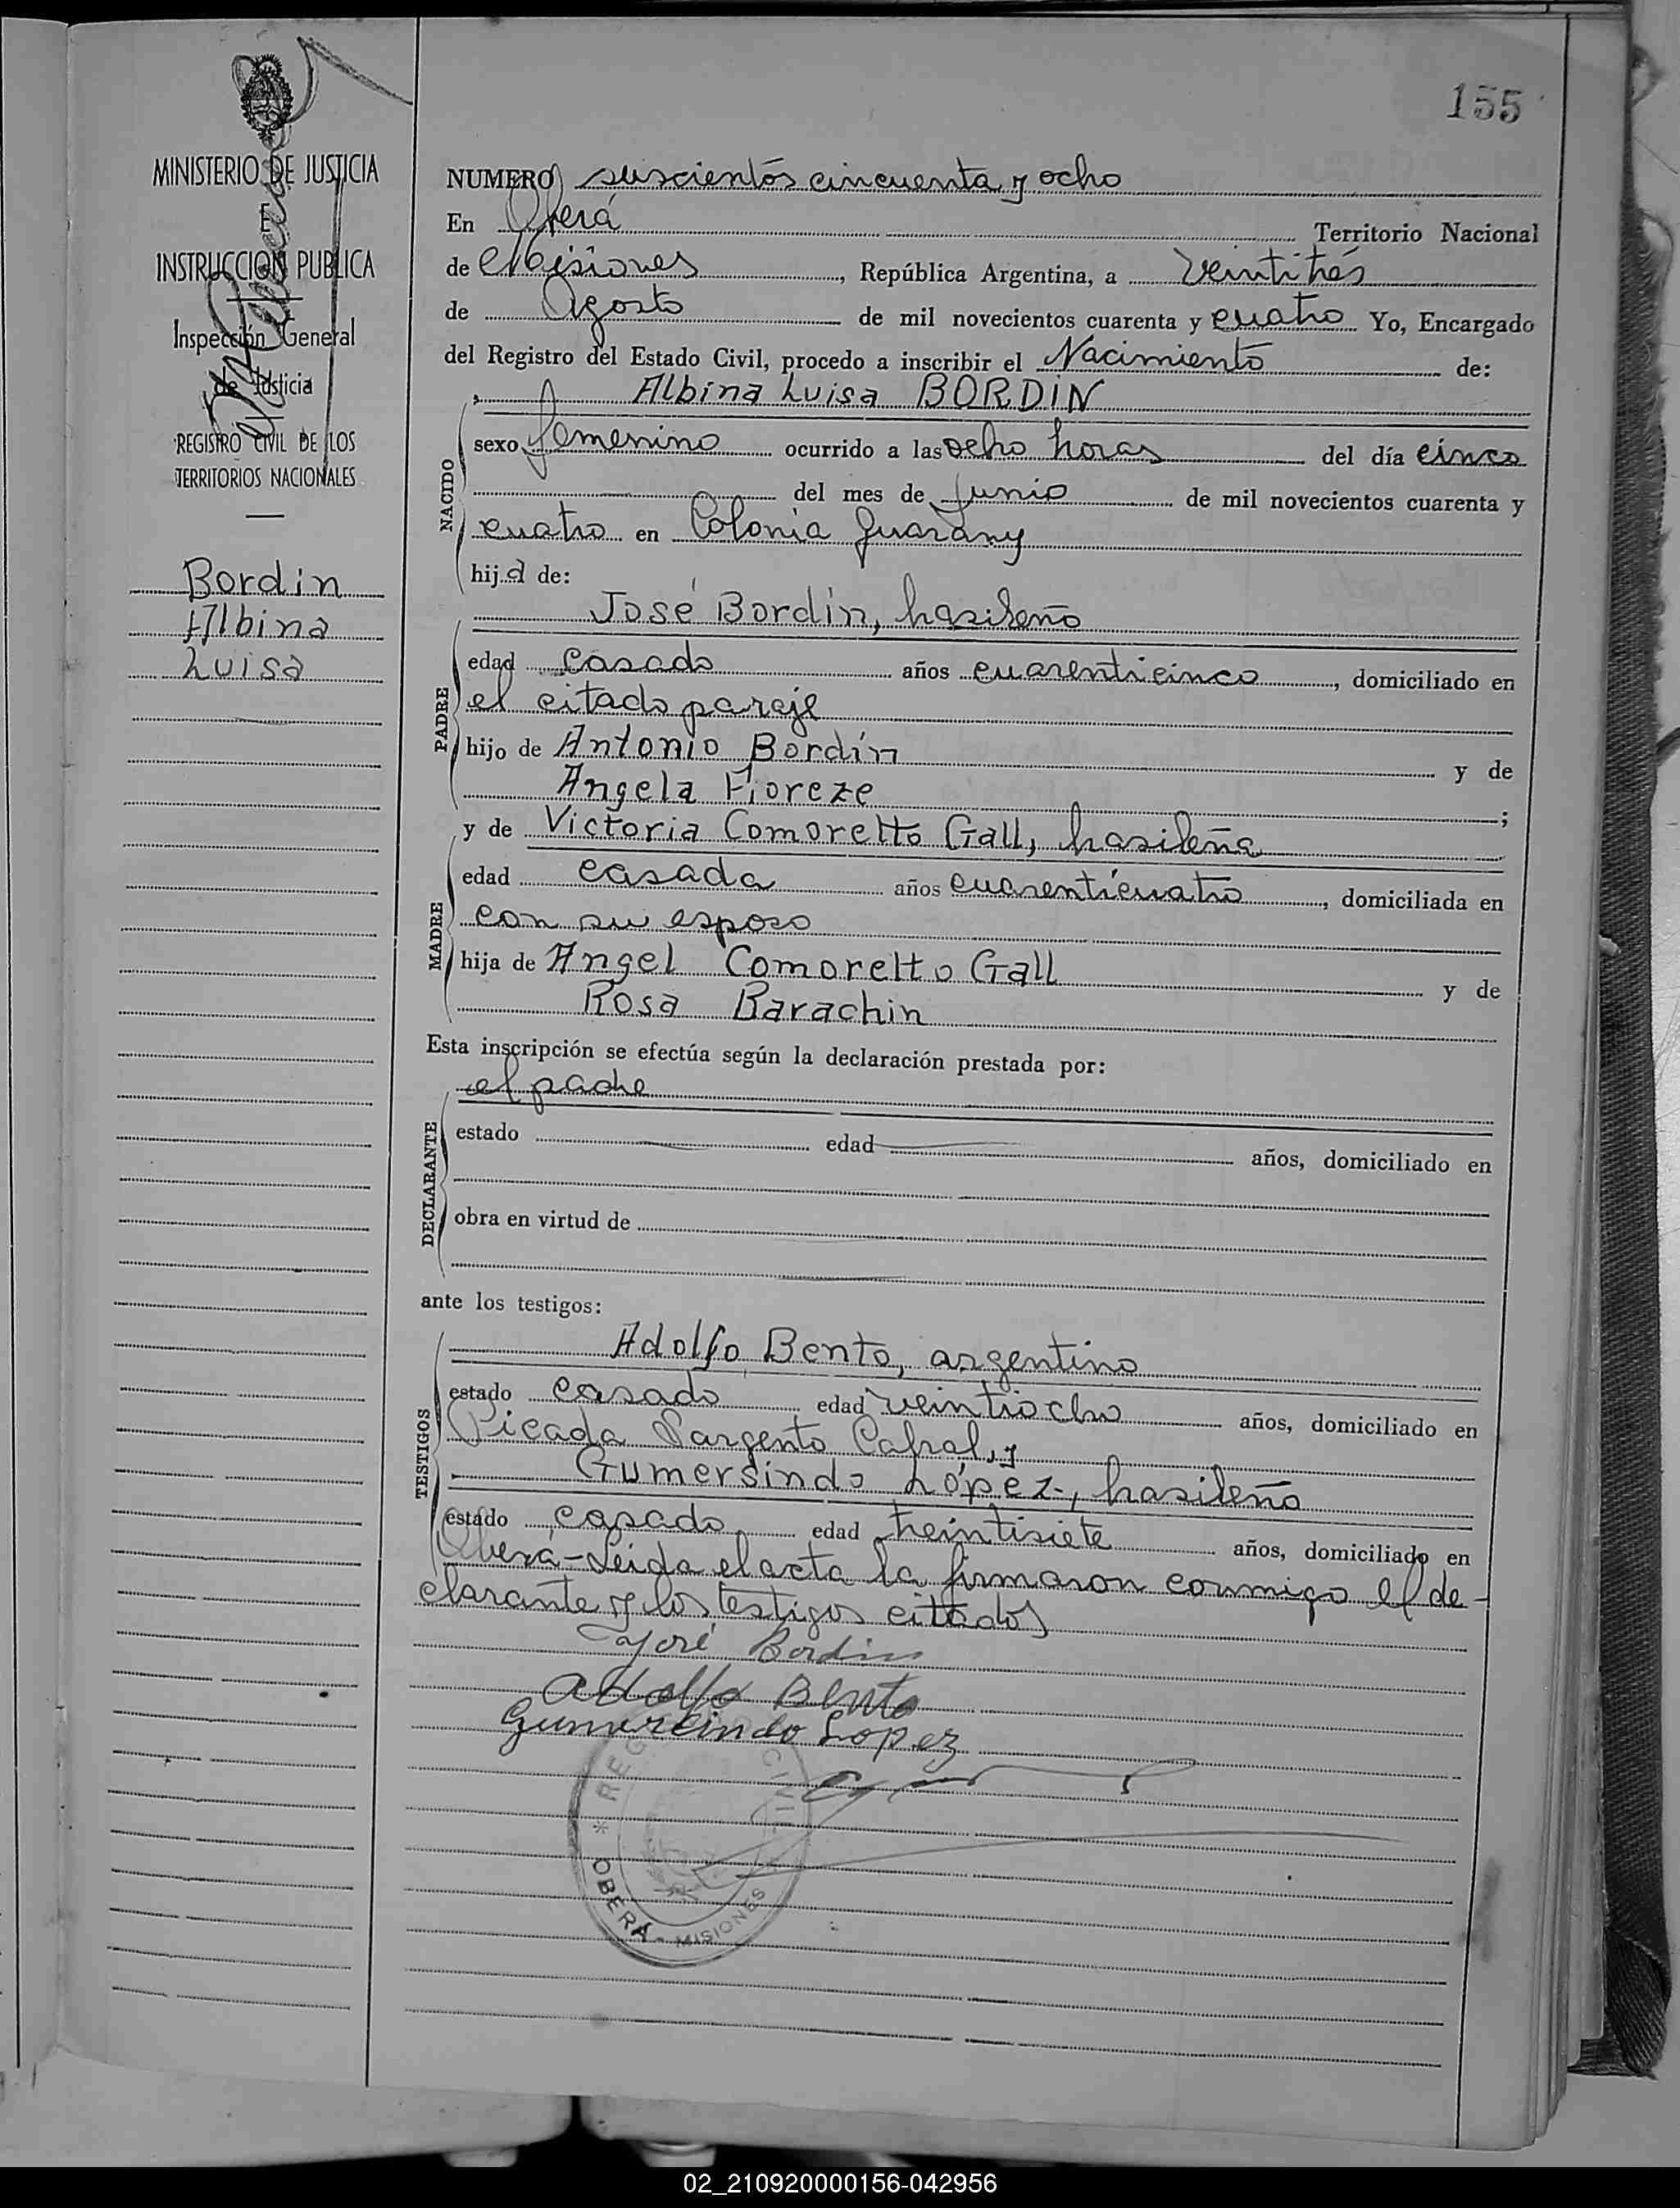 155
MINISTERIO DE JUSTICIA
E
INSTRUCCION PUBLICA
Inspección General
de Justicia
REGISTRO CIVIL DE LOS
TERRITORIOS NACIONALES
Bordin
Albina
Luisa
NUMERO suscientós cincuenta y ocho
En Oberá Territorio Nacional
de Misiones, República Argentina, a Veintitrés
de Agosto de mil novecientos cuarenta y cuatro Yo, Encargado
del Registro del Estado Civil, procedo a inscribir el Nacimiento de:
Albina Luisa BORDIN
NACIDO
sexo femenino ocurrido a las ocho horas del día cinco
del mes de Junio de mil novecientos cuarenta y
cuatro en Colonia Guarány
hija de:
José Bordín, brasileño
PADRE
edad casado años cuarenticinco, domiciliado en
el citado paraje
hijo de Antonio Bordín y de
Angela Fioreze;
y de Victoria Comoretto Gall, brasileña
MADRE
edad casada años cuarenticuatro, domiciliada en
con su esposo
hija de Angel Comoretto Gall y de
Rosa Barachin
Esta inscripción se efectúa según la declaración prestada por:
el padre
DECLARANTE
estado edad años, domiciliado en
obra en virtud de
ante los testigos:
TESTIGOS
Adolfo Bento, argentino
estado casado edad veintiocho años, domiciliado en
Picada Sargento Cabral, y
Gumersindo López, brasileño
estado casado edad treintisiete años, domiciliado en
Oberá-Leida el acta la firmaron conmigo el de-
clarante y los testigos citados
José Bordin
Adolfo Bento
Gumercindo Lopez
* REGISTRO CIVIL
OBERÁ - MISIONES
02_210920000156-042956